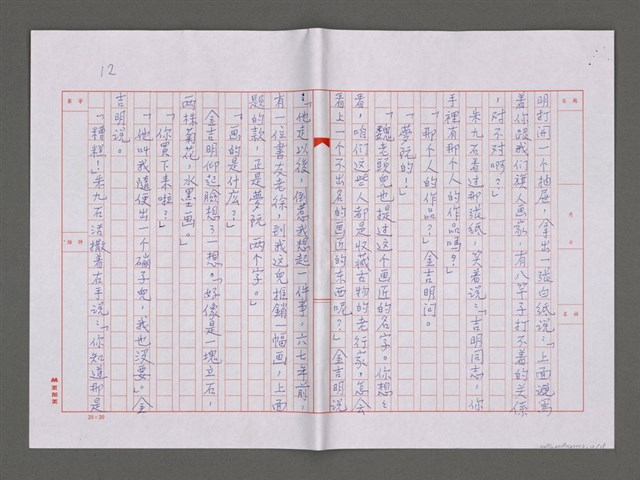 12
明打開一个抽屜，拿出一张白纸说：「上面還寫
着你跟我们旗人画家，有八竿子打不着的关係
，对不对啊？」
朱九石看过那张纸，笑着说：「吉明同志，你
手裡有那个人的作品嗎？」
「那个人的作品？」金吉明问。
「夢阮的！」
「魏老頭兒也提过这个画匠的名字。你想：
看，咱们这些人都是收藏古物的老行家，怎会
看上一个不出名的画匠的东西呢？」金吉明说
：「他走以後，倒惹我想起一件事。六七年前，
有一位書友老徐，到我这兒推銷一幅画，上面
题的款，正是夢阮两个字。」
「画的是什么？」
金吉明仰起脸想了一想。「好像是一塊立石，
两株菊花，水墨画。」
「你買下来啦？」
「他叫我隨便出一个碼子兒，我也没要。」金
吉明说。
「糟糕！」朱九石活撒着右手说：「你知道那是
20×20